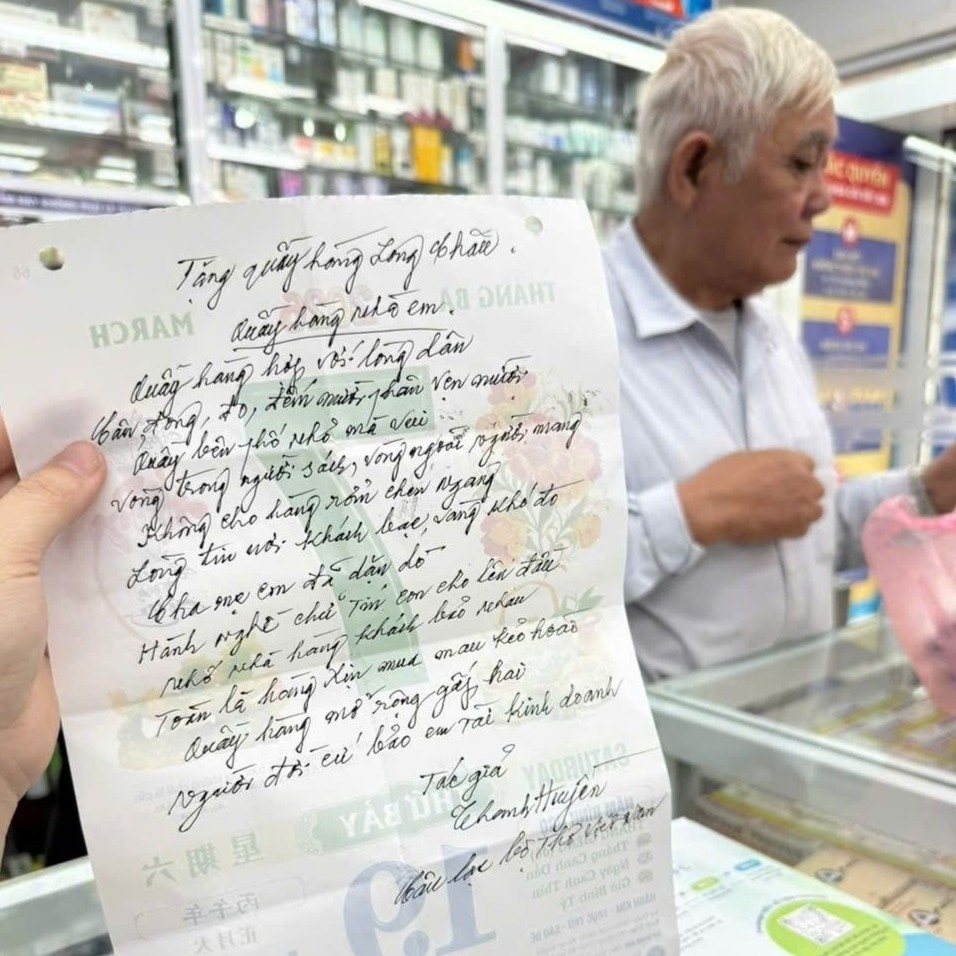 Tặng quầy hàng Long Châu.
Quầy hàng nhà em.
Quầy hàng hợp với lòng dân
Cân đong, đo, đếm mười phân vẹn mười
Quầy bên phố nhỏ mà vui
vòng trong người sách, vòng ngoài người mang
Không cho hàng rởm chen ngang
Lòng tin với khách bạc, vàng khó đo
Cha mẹ em đã dặn dò
Hành nghề chữ Tín con cho lên đầu
nhớ nhà hàng khách bảo nhau
Toàn là hàng xịn mua mau kẻo hoài
Quầy hàng mở rộng gấp hai
người đời cứ bảo em tài kinh doanh
Tác giả
Thanh Huyền
Câu lạc bộ Thơ Việt Nam
THÁNG BA 2026
MARCH
7
SATURDAY
THỨ BẢY
星期六
丙午年
正月大
19
Tháng Canh Dần
Ngày Canh Thìn
Giờ Bính Tý
QUYỀN